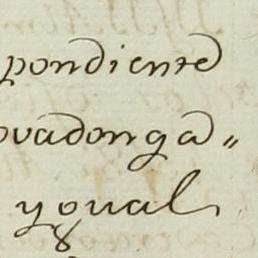 pondiente
ovadonga"
y gual